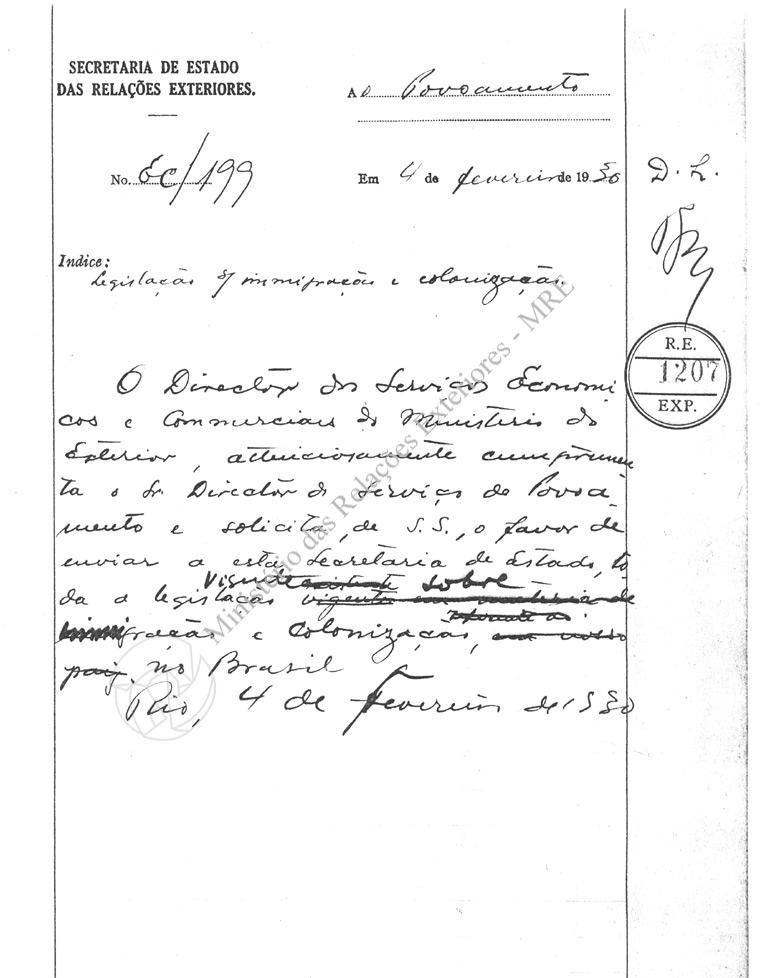 SECRETARIA DE ESTADO
DAS RELAÇÕES EXTERIORES.
Ao Povoamento
No. EC/199
Em 4 de fevereiro de 1930
D. L.
Indice:
Legislação s/ immigração e colonização.
R.E.
1207
EXP.
O Director dos Serviços Economi
cos e Commerciaes do Ministerio do
Exterior, attenciosamente cumprimen
ta o Sr. Director do Serviço de Povoa
mento e solicita, de S.S., o favor de
enviar a esta Secretaria de Estado, to
vigente sobre
da a legislação vigente em materia de
immigração e colonização, em nosso
paiz. no Brasil
Rio, 4 de Fevereiro de 1930
Ministério das Relações Exteriores - MRE